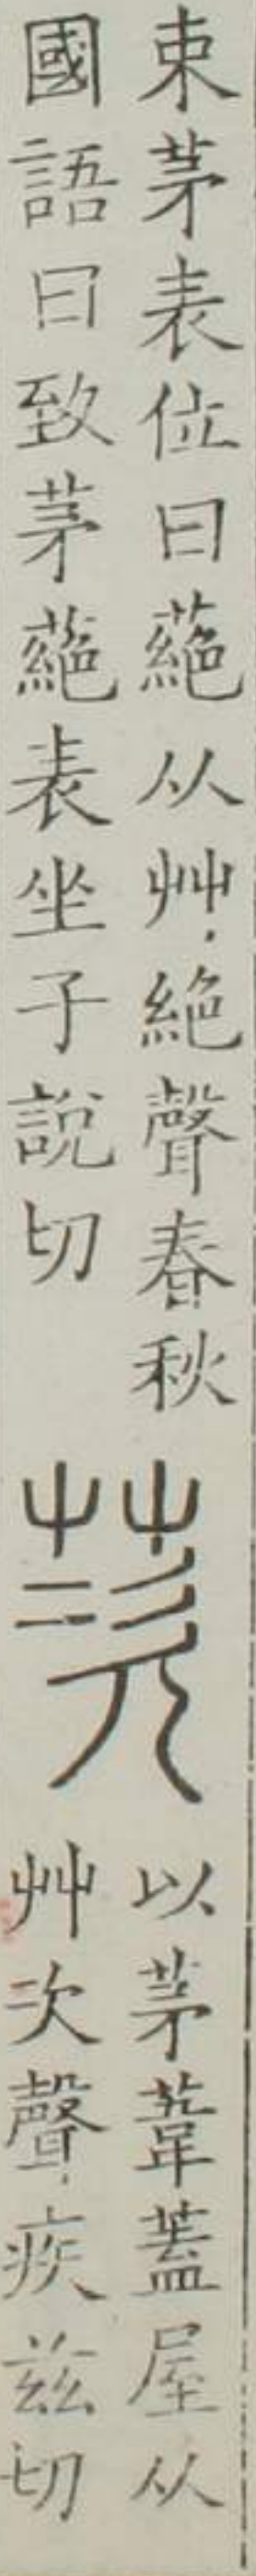 朿茅表位曰蕝从艸絕聲春秋
國語曰致茅蕝表坐子說切
茨
以茅葦蓋屋从
艸次聲疾兹切